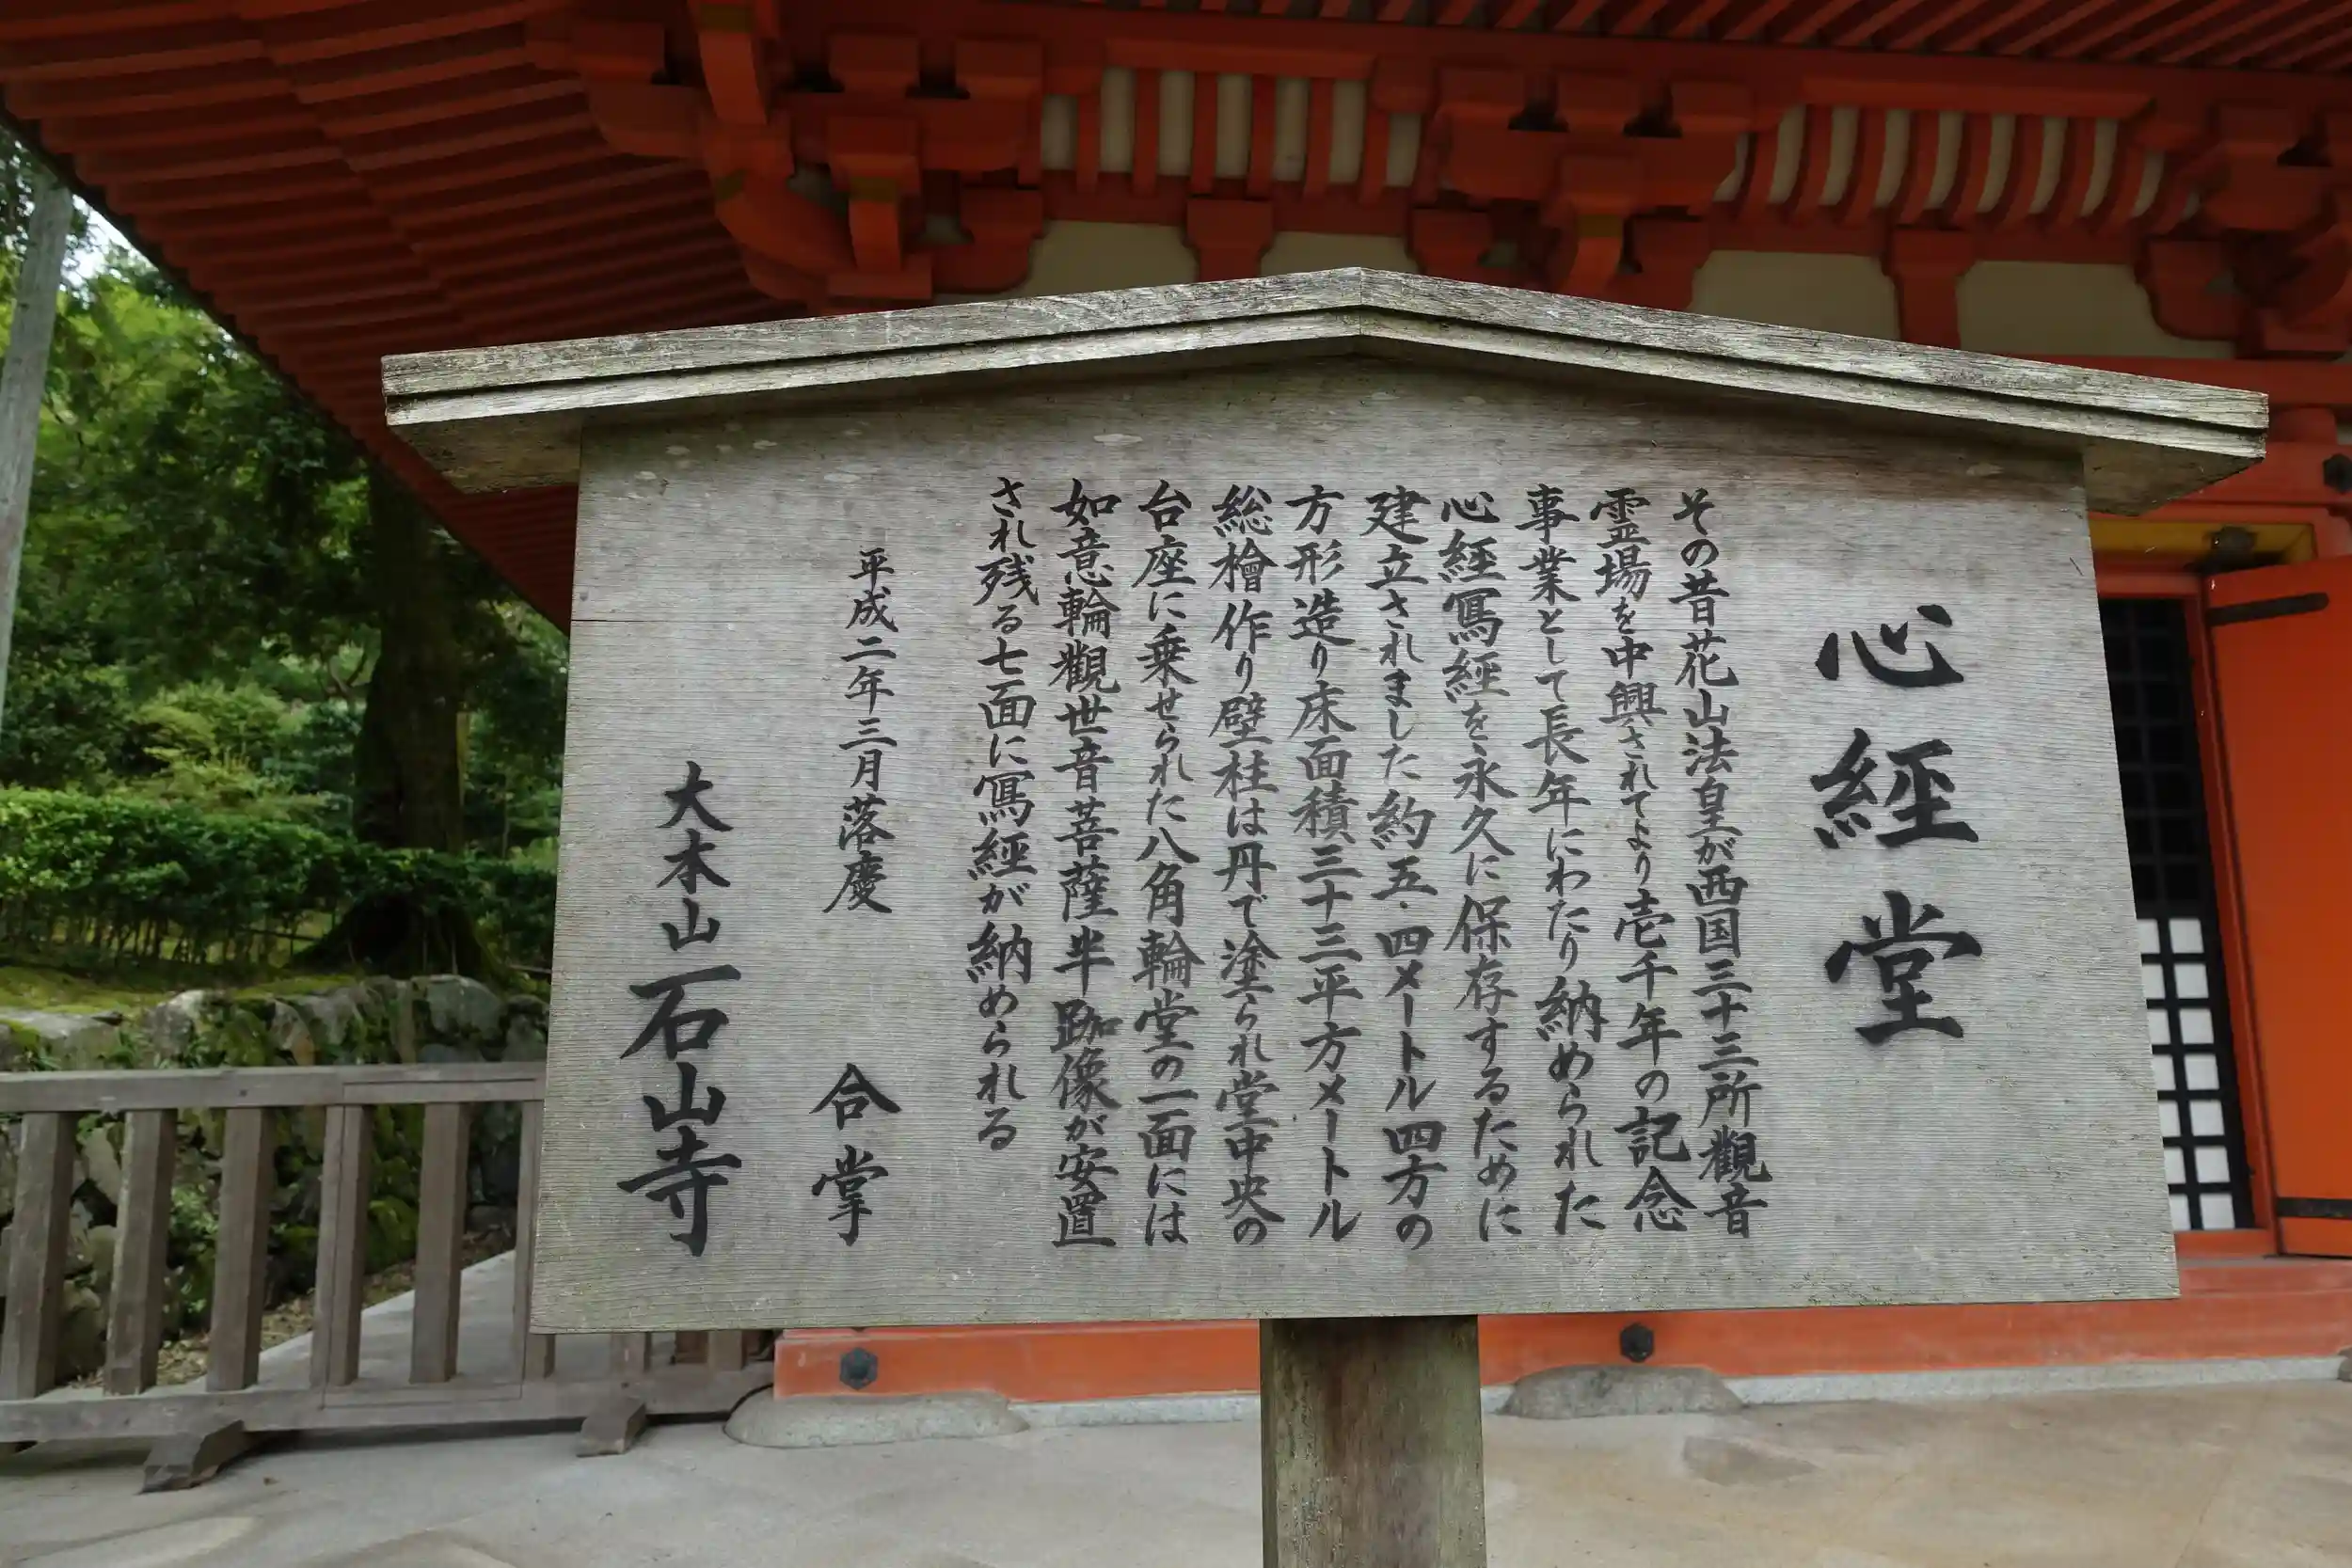 心經堂
その昔花山法皇が西国三十三所觀音
霊場を中興されてより壱千年の記念
事業として長年にわたり納められた
心經寫経を永久に保存するために
建立されました約五・四メートル四方の
方形造り床面積三十三平方メートル
総檜作り壁柱は丹で塗られ堂中央の
台座に乗せられた八角輪堂の一面には
如意輪觀世音菩薩半跏像が安置
され残る七面に寫経が納められる
平成二年三月落慶
合掌
大本山石山寺